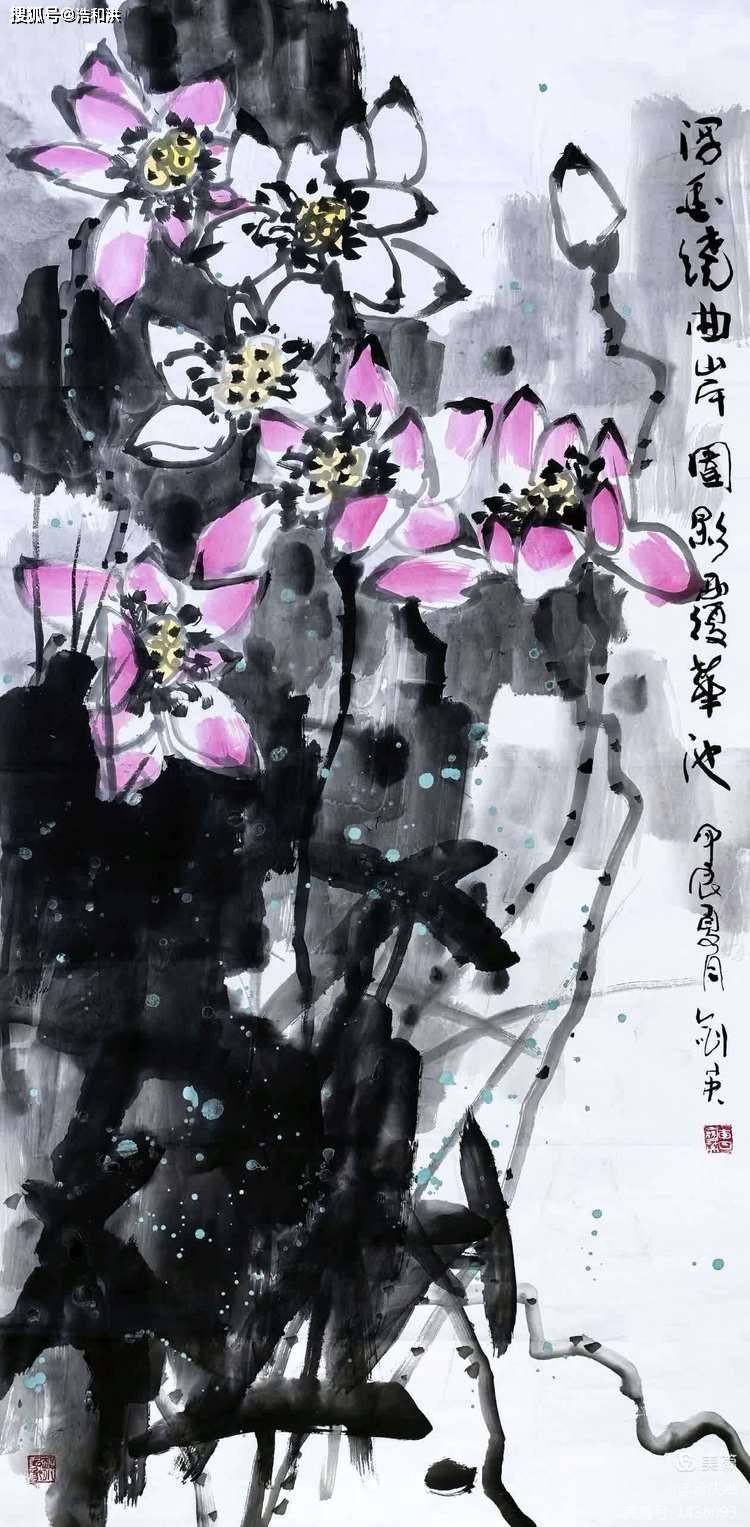 搜狐号@浩和洪
浮香绕曲岸圆影覆华池
甲辰夏月剑英
美篇